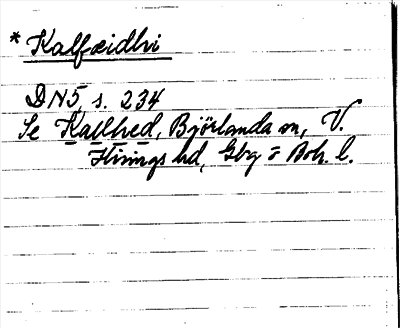 * Kalfæidhi
DN5, s. 234
Se Kallhed, Björlanda sn, V.
Hisings hd, Gbg o Boh. l.